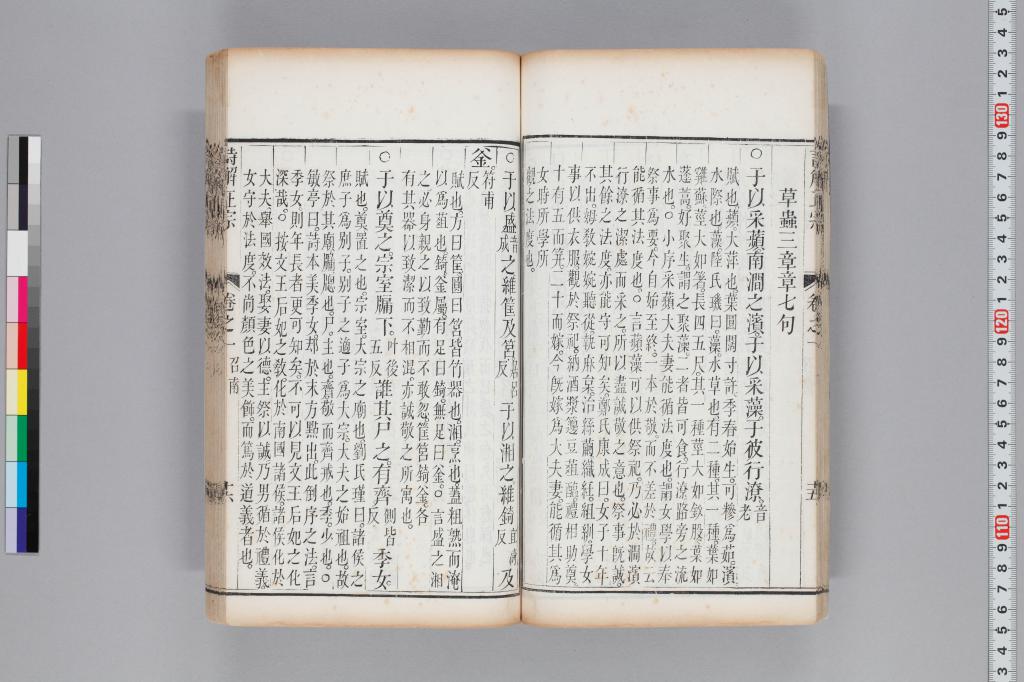 草蟲三章章七句
○于以采蘋南澗之濱于以采藻于彼行潦音老
賦也蘋大萍也葉圓闊寸許季春始生可糝為茹濱
水際也藻陸氏璣曰藻水草也有二種其一種葉如
雞蘇莖大如箸長四五尺其一種莖大如釵股葉如
蓬蒿好聚生謂之聚藻二者皆可食行潦路旁之流
水也○小序采蘋大夫妻能循法度也謂女學以奉
祭事為要今自始至終一本於敬而不差於禮故云
能循其法度也○言蘋藻可以供祭祀乃必於澗濱
行潦之潔處而采之所以盡誠敬之意也祭事旣誠
其餘之法度亦能守可知矣鄭氏康成曰女子十年
不出姆敎婉娩聽從執麻枲治絲繭織紝組紃學女
事以供衣服觀於祭祀納酒漿籩豆葅醢禮相助奠
十有五而筓二十而嫁今旣嫁為大夫妻能循其為
女時所學所
觀之法度也
○于以盛音成之維筐及筥居呂反于以湘之維錡反及
釜符甫反
賦也方曰筐圓曰筥皆竹器也湘烹也蓋粗熟而淹
以為葅也錡釜屬有足曰錡無足曰釜○言盛之湘
之必身親之以致勤而不敢忽筐筥錡釜各
有其器以致潔而不相混亦誠敬之所寓也
○于以奠之宗室牖下叶後五反誰其尸之有齊側皆反季女
賦也奠置之也宗室大宗之廟也劉氏瑾曰諸侯之
庶子為別子別子之適子為大宗大夫之始祖也故
祭於其廟牖牖也尸主也齊敬而齊戒也季少也○
敏亭曰詩本美季女却於末方點出此倒序之法言
季女則年長者更可知矣不可以見文王后妃之化
深哉○按文王后妃之敎化於南國諸侯諸侯化於
大夫舉國效法娶妻以德主祭以誠乃男循於禮義
女守於法度不尚顏色之美飾而篤於道義者也
詩解正宗
卷之一
召南